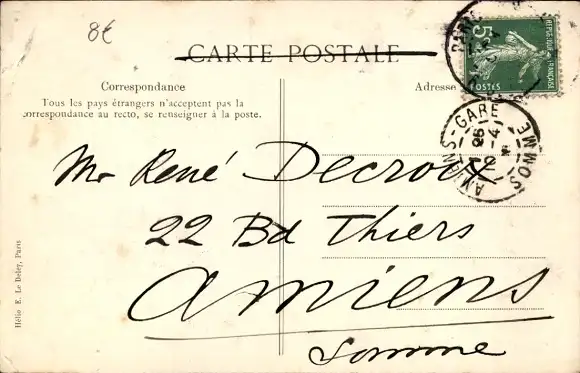 8€
CARTE POSTALE
5
REPUBLIQUE FRANÇAISE
POSTES
Correspondance
Adresse
Tous les pays étrangers n'acceptent pas la
correspondance au recto, se renseigner à la poste.
AMIENS-GARE
SOMME
Mr René Decroix
22 Bd Thiers
Amiens
Somme
Hélio E. Le Deley, Paris